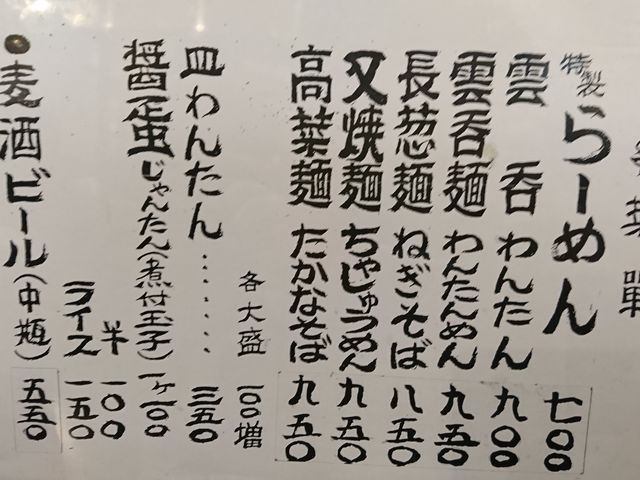 菜單
特製らーめん 七〇〇
雲呑 わんたん 九〇〇
雲呑麺 わんたんめん 九五〇
長葱麺 ねぎそば 八五〇
叉焼麺 ちゃしゅうめん 九五〇
高菜麺 たかなそば 九五〇
各大盛 一〇〇増
皿わんたん‥‥‥ 三五〇
醤蛋じゃんたん(煮付玉子) 一ヶ一〇〇
半 一〇〇
ライス 一五〇
●麦酒ビール(中瓶) 五五〇